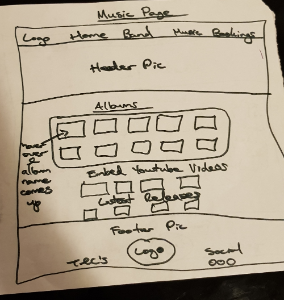 Music Page
Logo Home Band Music Bookings
Header Pic
Albums
hover
over
&
album
name
comes
up
Embed Youtube Videos
Latest Releases
Footer Pic
T&C's Logo Social